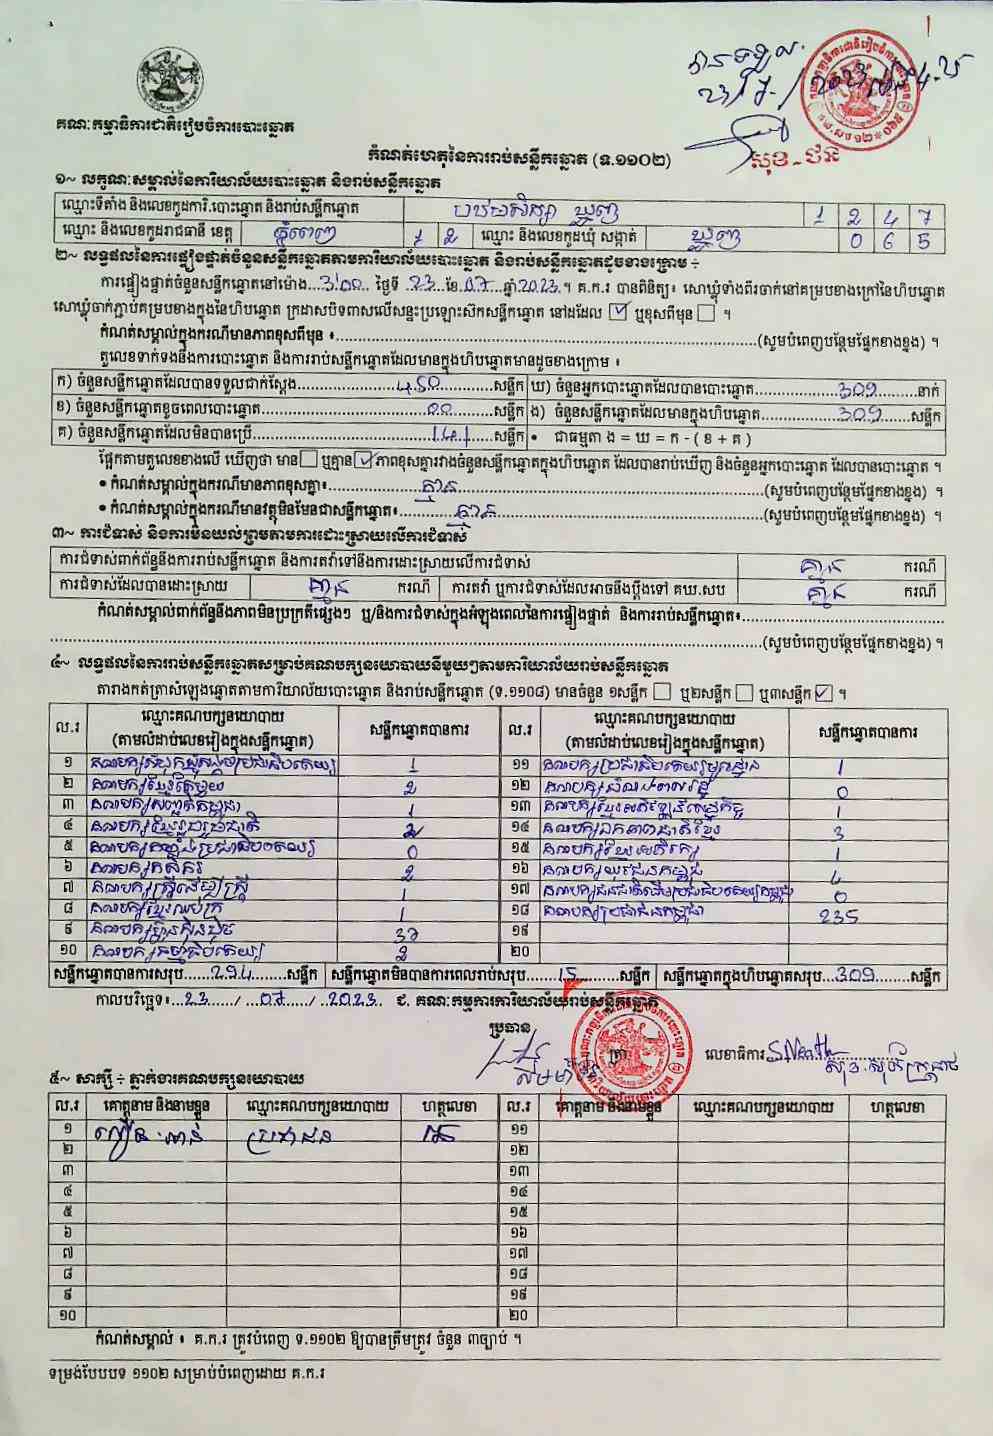 គណៈកម្មាធិការជាតិរៀបចំការបោះឆ្នោត
កំណត់ហេតុនៃការរាប់សន្លឹកឆ្នោត (ទ.១១០២)
១~ លក្ខណៈសម្គាល់នៃការិយាល័យបោះឆ្នោត និងរាប់សន្លឹកឆ្នោត
ឈ្មោះទីតាំង និងលេខកូដការិ.បោះឆ្នោត និងរាប់សន្លឹកឆ្នោត 1 2 4 7
ឈ្មោះ និងលេខកូដរាជធានី ខេត្ត ភ្នំពេញ 1 2 ឈ្មោះ និងលេខកូដឃុំ សង្កាត់ 0 6 5
២~ លទ្ធផលនៃការផ្ទៀងផ្ទាត់ចំនួនសន្លឹកឆ្នោតតាមការិយាល័យបោះឆ្នោត និងរាប់សន្លឹកឆ្នោតដូចខាងក្រោម ÷
ការផ្ទៀងផ្ទាត់ចំនួនសន្លឹកឆ្នោតនៅម៉ោង...3:00... ថ្ងៃទី ..23..ខែ.07..ឆ្នាំ.2023.។ គ.ក.រ បានពិនិត្យ៖ សោឃ្លុំទាំងពីរចាក់នៅគម្របខាងក្រៅនៃហិបឆ្នោត
សោឃ្លុំចាក់ភ្ជាប់គម្របខាងក្នុងនៃហិបឆ្នោត ក្រដាសបិទពាសលើសន្ទះប្រឡោះស៊កសន្លឹកឆ្នោត នៅដដែល ☑ ឬខុសពីមុន ☐ ។
កំណត់សម្គាល់ក្នុងករណីមានភាពខុសពីមុន ៖......(សូមបំពេញបន្ថែមផ្នែកខាងខ្នង) ។
តួលេខទាក់ទងនឹងការបោះឆ្នោត និងការរាប់សន្លឹកឆ្នោតដែលមានក្នុងហិបឆ្នោតមានដូចខាងក្រោម ៖
ក) ចំនួនសន្លឹកឆ្នោតដែលបានទទួលជាក់ស្តែង......450......សន្លឹក ឃ) ចំនួនអ្នកបោះឆ្នោតដែលបានបោះឆ្នោត......309......នាក់
ខ) ចំនួនសន្លឹកឆ្នោតខូចពេលបោះឆ្នោត......00......សន្លឹក ង) ចំនួនសន្លឹកឆ្នោតដែលមានក្នុងហិបឆ្នោត......309......សន្លឹក
គ) ចំនួនសន្លឹកឆ្នោតដែលមិនបានប្រើ......141......សន្លឹក • ជាធម្មតា ង = ឃ = ក - ( ខ + គ )
ផ្អែកតាមតួលេខខាងលើ ឃើញថា មាន ☐ ឬគ្មាន ☑ ភាពខុសគ្នារវាងចំនួនសន្លឹកឆ្នោតក្នុងហិបឆ្នោត ដែលបានរាប់ឃើញ និងចំនួនអ្នកបោះឆ្នោត ដែលបានបោះឆ្នោត ។
• កំណត់សម្គាល់ក្នុងករណីមានភាពខុសគ្នា៖......គ្មាន......(សូមបំពេញបន្ថែមផ្នែកខាងខ្នង) ។
• កំណត់សម្គាល់ក្នុងករណីមានវត្ថុមិនមែនជាសន្លឹកឆ្នោត៖......គ្មាន......(សូមបំពេញបន្ថែមផ្នែកខាងខ្នង) ។
៣~ ការជំទាស់ និងការមិនយល់ព្រមតាមការដោះស្រាយលើការជំទាស់
ការជំទាស់ពាក់ព័ន្ធនឹងការរាប់សន្លឹកឆ្នោត និងការតវ៉ាទៅនឹងការដោះស្រាយលើការជំទាស់ គ្មាន ករណី
ការជំទាស់ដែលបានដោះស្រាយ គ្មាន ករណី ការតវ៉ា ឬការជំទាស់ដែលអាចនឹងប្តឹងទៅ គឃ.សប គ្មាន ករណី
កំណត់សម្គាល់ពាក់ព័ន្ធនឹងភាពមិនប្រក្រតីផ្សេងៗ ឬ/និងការជំទាស់ក្នុងអំឡុងពេលនៃការផ្ទៀងផ្ទាត់ និងការរាប់សន្លឹកឆ្នោត៖......
......(សូមបំពេញបន្ថែមផ្នែកខាងខ្នង) ។
៤~ លទ្ធផលនៃការរាប់សន្លឹកឆ្នោតសម្រាប់គណបក្សនយោបាយនីមួយៗតាមការិយាល័យរាប់សន្លឹកឆ្នោត
តារាងកត់ត្រាសំឡេងឆ្នោតតាមការិយាល័យបោះឆ្នោត និងរាប់សន្លឹកឆ្នោត (ទ.១១០៨) មានចំនួន ១សន្លឹក ☐ ឬ២សន្លឹក ☐ ឬ៣សន្លឹក ☑ ។
ល.រ ឈ្មោះគណបក្សនយោបាយ (តាមលំដាប់លេខរៀងក្នុងសន្លឹកឆ្នោត) សន្លឹកឆ្នោតបានការ ល.រ ឈ្មោះគណបក្សនយោបាយ (តាមលំដាប់លេខរៀងក្នុងសន្លឹកឆ្នោត) សន្លឹកឆ្នោតបានការ
១ គណបក្សសំបុកឃ្មុំសង្គមប្រជាធិបតេយ្យ 1 ១១ គណបក្សប្រជាធិបតេយ្យមូលដ្ឋាន 1
២ គណបក្សខ្មែរតែមួយ 2 ១២ 0
៣ គណបក្សសញ្ជាតិកម្ពុជា 1 ១៣ គណបក្សខ្មែរអភិវឌ្ឍន៍សេដ្ឋកិច្ច 1
៤ គណបក្សខ្មែររួបរួមជាតិ ១៤ គណបក្សឯកភាពជាតិខ្មែរ 3
៥ គណបក្សកម្លាំងប្រជាធិបតេយ្យ 0 ១៥ គណបក្សខ្មែរអភិរក្ស 1
៦ គណបក្សកសិករ 2 ១៦ គណបក្សយុវជនកម្ពុជា
៧ គណបក្សស្ត្រីដើម្បីស្ត្រី 1 ១៧ គណបក្សជនជាតិដើមប្រជាធិបតេយ្យកម្ពុជា 0
៨ គណបក្សខ្មែរឈប់ក្រ 1 ១៨ គណបក្សប្រជាជនកម្ពុជា 235
៩ គណបក្សហ៊្វុនស៊ិនប៉ិច ១៩
១០ គណបក្សធម្មាធិបតេយ្យ 2 ២០
សន្លឹកឆ្នោតបានការសរុប......294......សន្លឹក សន្លឹកឆ្នោតមិនបានការពេលរាប់សរុប......15......សន្លឹក សន្លឹកឆ្នោតក្នុងហិបឆ្នោតសរុប..309......សន្លឹក
កាលបរិច្ឆេទ៖...23....../...07...../..2023.. ជ. គណៈកម្មការការិយាល័យរាប់សន្លឹកឆ្នោត
ប្រធាន
ត្រា
លេខាធិការ
៥~ សាក្សី ÷ ភ្នាក់ងារគណបក្សនយោបាយ
ល.រ គោត្តនាម និងនាមខ្លួន ឈ្មោះគណបក្សនយោបាយ ហត្ថលេខា ល.រ គោត្តនាម និងនាមខ្លួន ឈ្មោះគណបក្សនយោបាយ ហត្ថលេខា
១ ប្រជាជន ១១
២ ១២
៣ ១៣
៤ ១៤
៥ ១៥
៦ ១៦
៧ ១៧
៨ ១៨
៩ ១៩
១០ ២០
កំណត់សម្គាល់ ៖ គ.ក.រ ត្រូវបំពេញ ទ.១១០២ ឱ្យបានត្រឹមត្រូវ ចំនួន ៣ច្បាប់ ។
ទម្រង់បែបបទ ១១០២ សម្រាប់បំពេញដោយ គ.ក.រ